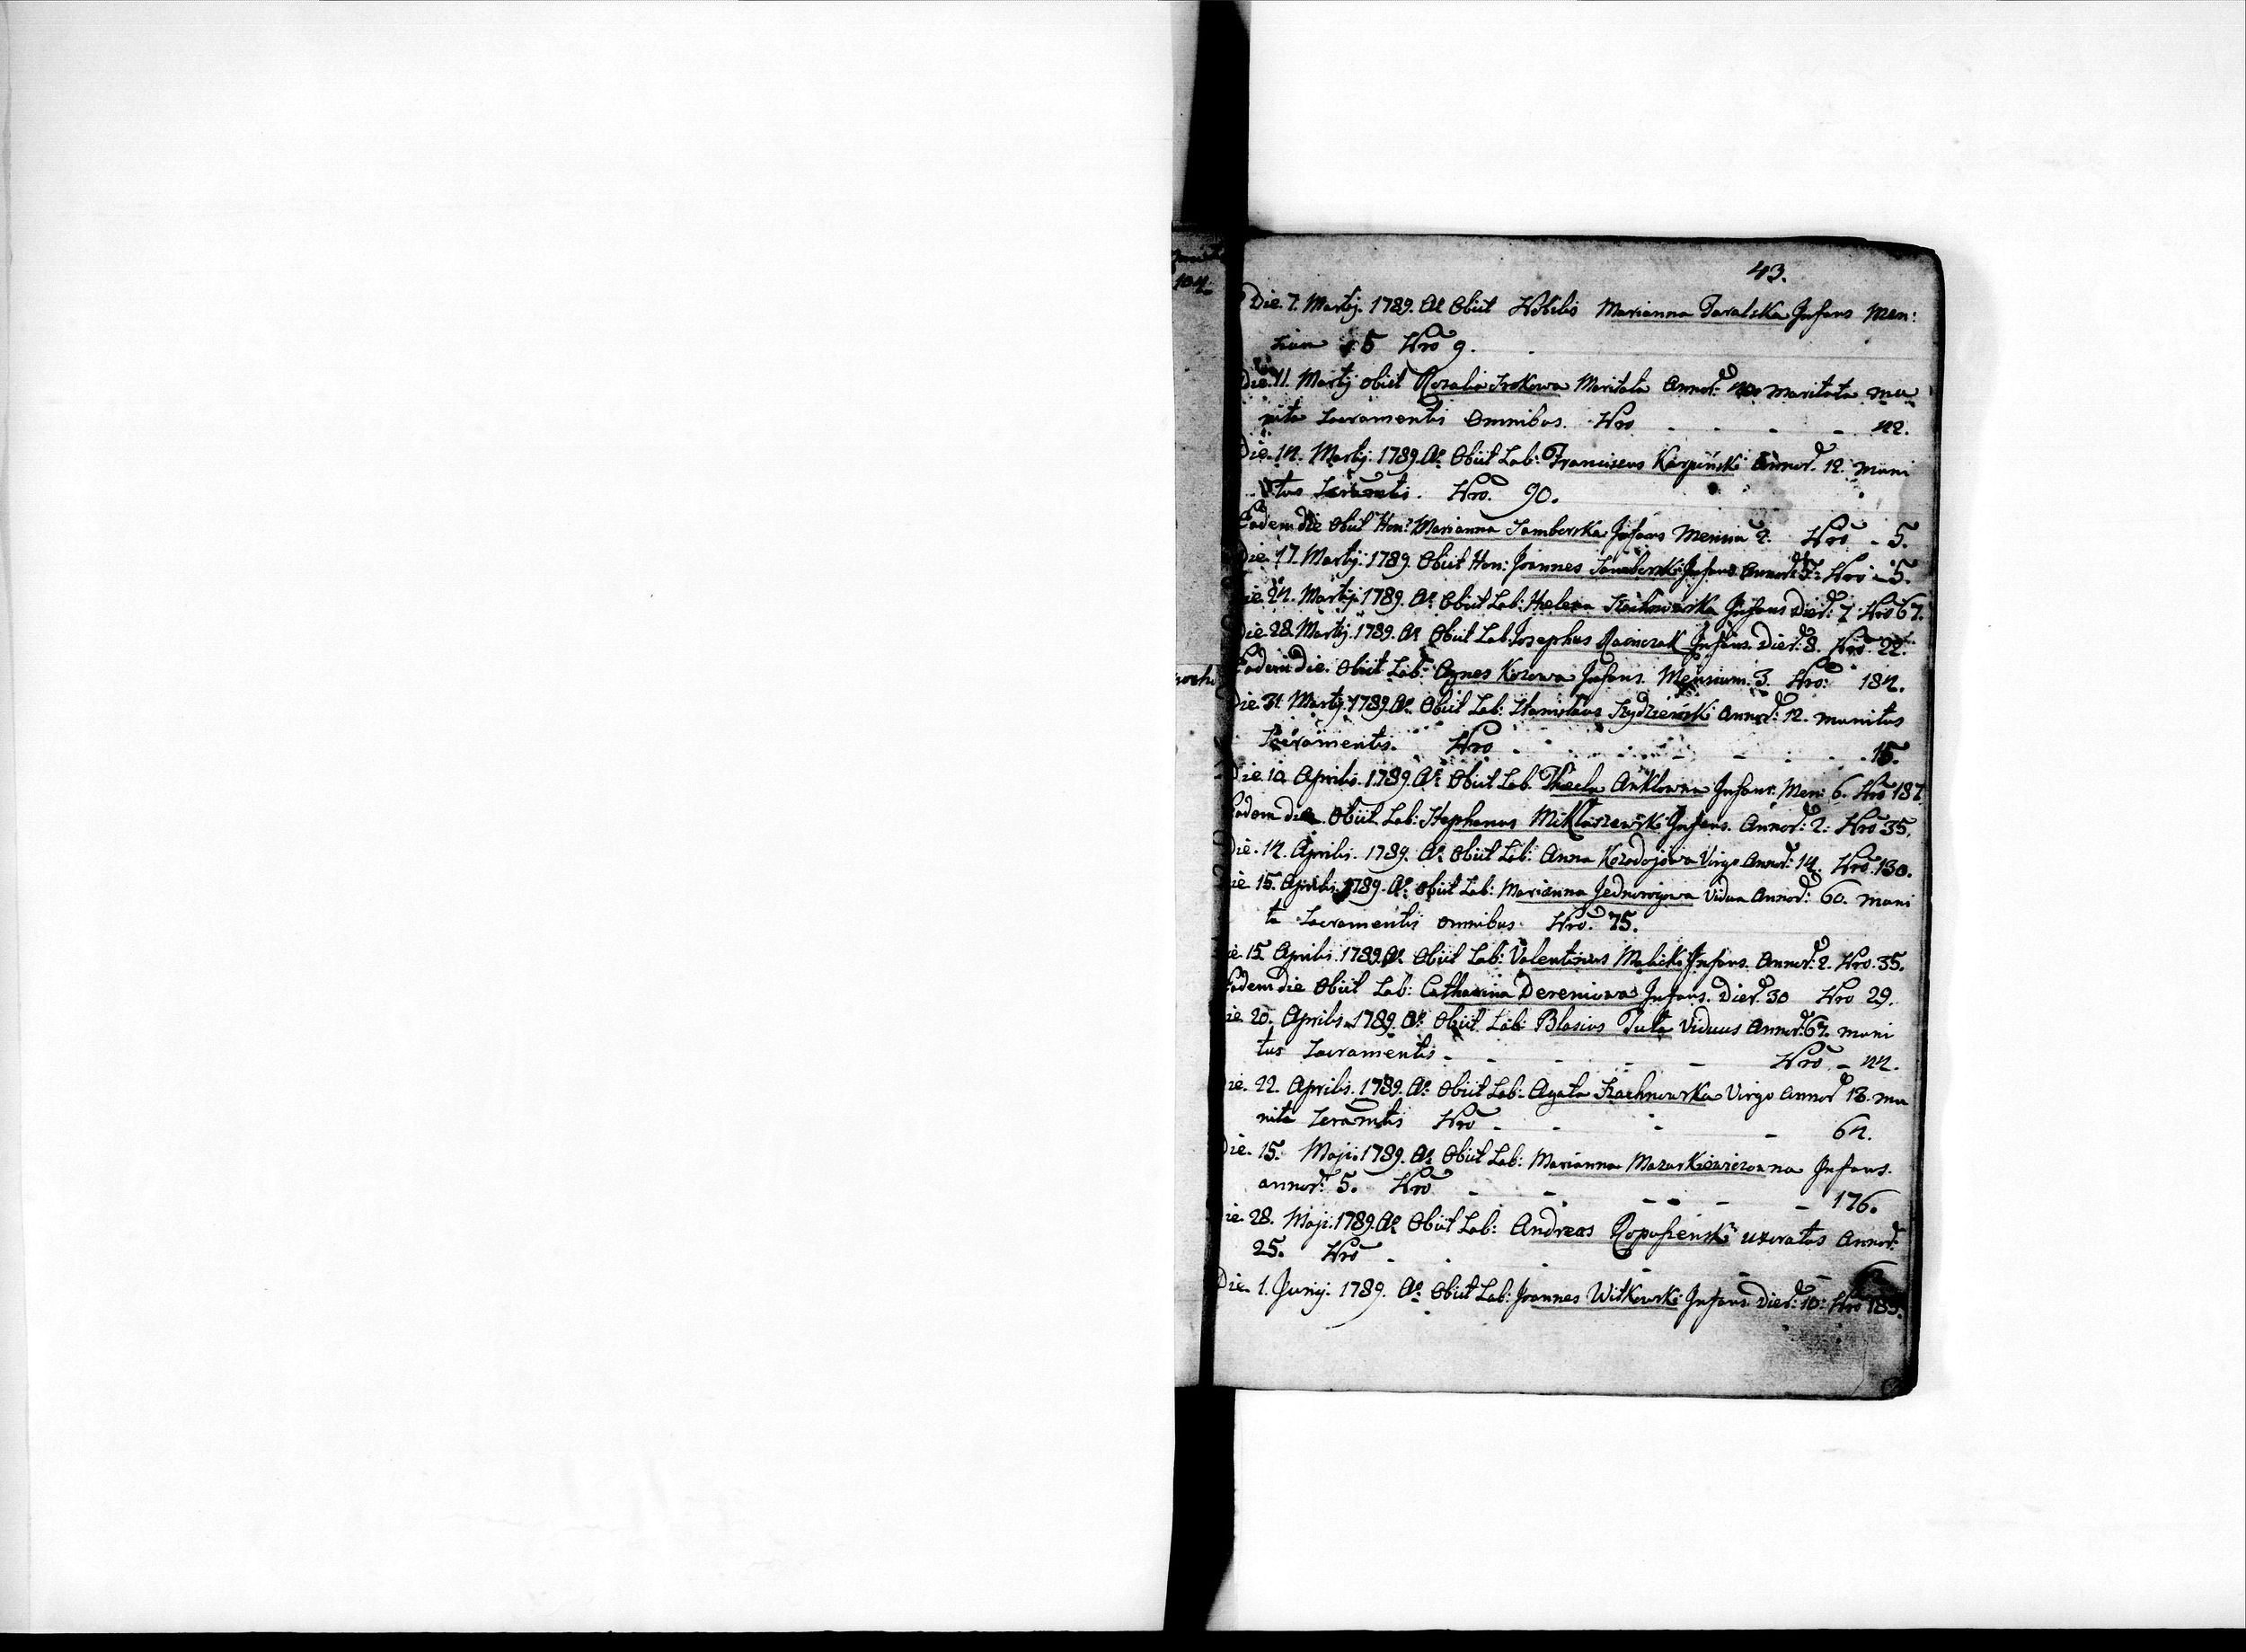 43.
Die. 7. Martij. 1789. Ao Obiit Nobilis Marianna Taralska Infans Men:
sium 5 Nro 9.
Die. 11. Martij obiit Rozalia Srokowa Maritata Annor: 40 maritata mu
nita Sacramentis Omnibus. Nro - - - - 42.
Die. 14. Martij. 1789. Ao Obiit Lab: Franciscus Karpinski Annor. 12. muni
tus Scramtis. Nro. 90.
Eadem die Obiit Hon: Marianna Samberska Infans Mensiu 2. Nro - 5.
Die. 17. Martij. 1789. Obiit Hon: Joannes Samberski Infans Annor: 3. Nro - 5.
Die 24. Martij. 1789. Ao Obiit Lab: Helena Infans Dier: 7 Nro 67.
Die 28. Martij. 1789. Ao Obiit Lab: Josephus Infans. Dier: 8. Nro. 22.
Eadem Die. Obiit Lab: Agnes Kozowa Infans. Mensium. 3. Nro: 184.
Die 31. Martij. 1789. Ao. Obiit Lab: Stanislaus Szydzienski Annor: 12. munitus
Sacramentis. Nro - - - - 15.
Die. 10. Aprilis. 1789. Ao Obiit Lab. Thecla Anklowna Infans. Men: 6. Nro 187.
Eadem die. Obiit Lab: Stephanus Miklaszewski Infans. Annor: 2. Nro 35.
Die. 14. Aprilis. 1789. Ao Obiit Lab: Anna Kozodojowa Virgo Annor: 14. Nro. 130.
Die 15. Aprilis. 1789. Ao. obiit Lab: Marianna Jednorogowa Vidua Annor: 60. muni
ta Sacramentis omnibus. Nro. 75.
Die 15 Aprilis. 1789. Ao Obiit Lab: Valentinus Malicki Infans. Annor: 2. Nro. 35.
Eadem die Obiit Lab: Catharina Dereniowa Infans. Dier. 30 Nro 29.
Die 20. Aprilis. 1789. Ao. Obiit. Lab: Blasius Tula Viduus Annor: 67. muni
tus Sacramentis - - - - Nro - 44.
Die. 22. Aprilis. 1789. Ao Obiit Lab: Agata Szachnowska Virgo Annor 18. mu
nita Scramtis Nro - - - - 64.
Die. 15. Maji. 1789. Ao Obiit Lab: Marianna Mazurkiewiczowna Infans.
annor: 5. Nro - - - - - 176.
Die. 28. Maji. 1789. Ao Obiit Lab: Andreas uxoratus Annor:
25. Nro - - - - -
Die. 1. Junij. 1789. Ao. Obiit Lab: Joannes Witkowski Infans. Dier: 10: Nro 183.